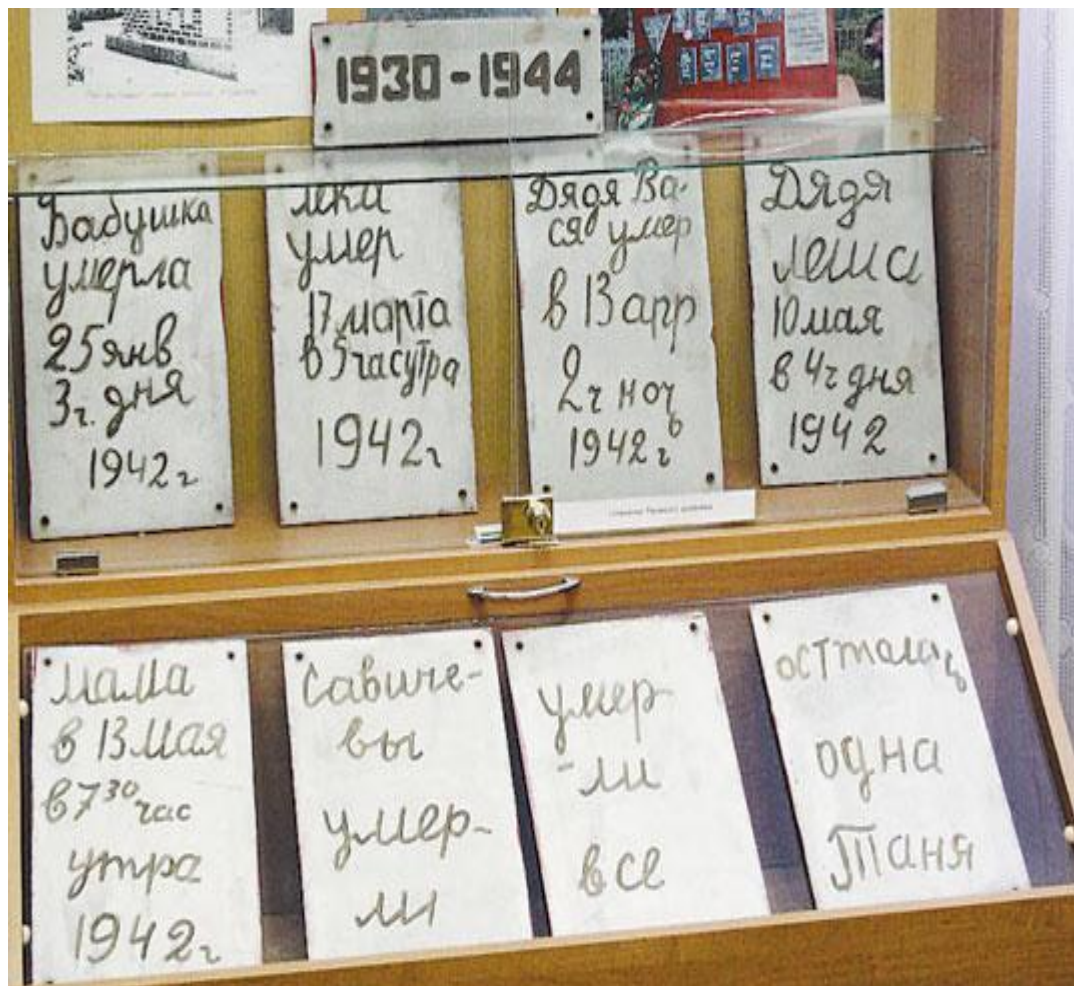 1930-1944
Бабушка
умерла
25 янв
3ч. дня
1942г
Лека
умер
17 марта
в 5 час утра
1942г
Дядя Ва-
ся умер
в 13 апр
2ч ночь
1942г
Дядя
Леша
10 мая
в 4ч дня
1942
мама
в 13 мая
в 7³⁰ час
утра
1942г
Савиче-
вы
умер-
ли
умер-
-ли
все
осттолась
одна
Таня